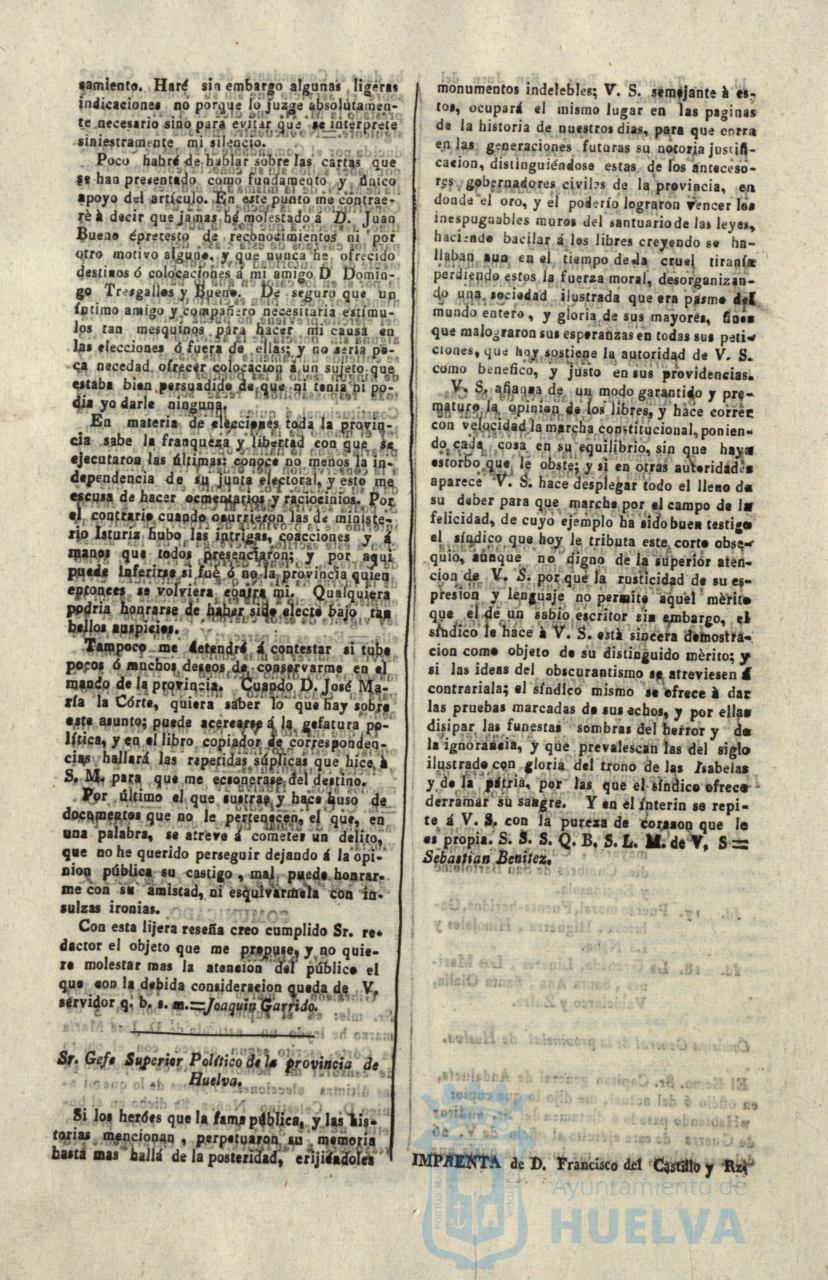 samiento. Haré sin embargo algunas ligeras
indicaciones no porque lo juzge absolutamen-
te necesario sino para evitar que se interprete
siniestramente mi silencio.
Poco habré de hablar sobre las cartas que
se han presentado como fundamento y único
apoyo del artículo. En este punto me contrae-
rè à decir que jamas he molestado à D. Juan
Bueno épretesto de reconocimientos ni por
otro motivo alguno. y que nunca he ofrecido
destinos ó colocaciones á mi amigo D Domin-
go Tresgallos y Bueno. De seguro que un
íntimo amigo y compañero necesitaria estimu-
los tan mesquinos para hacer mi causa en
las elecciones ó fuera de ellas; y no seria po-
ca necedad ofrecer colocacion á un sujeto que
estaba bien persuadido de que ni tenia ni po-
dia yo darle ninguna.
En materia de elecciones toda la provin-
cia sabe la franqueza y libertad con que se
ejecutaron las últimas: conoce no menos la in-
dependencia de su junta electoral, y esto me
escusa de hacer ocmentarios y raciocinios. Por
el contrario cuando ocurrieron las de ministe-
rio Isturiz hubo las intrigas, coacciones y á
manos que todos presenciaron; y por aqui
puede inferirse si fué ó no la provincia quien
entonces se volviera contra mi. Qualquiera
podria honrarse de haber sido electo bajo tan
bellos auspicios.
Tampoco me detendré á contestar si tube
pocos ó muchos deseos de conservarme en el
mando de la provincia. Cuando D. José Ma-
ría la Córte, quiera saber lo que hay sobre
este asunto; puede acercarse á la gefatura po-
lítica, y en el libro copiador de corresponden-
cias hallará las rapetidas súplicas que hice à
S. M. para que me ecsonerase del destino.
Por último el que sustrae y hace huso de
documentos que no le pertenecen, el que, en
una palabra, se atreve á cometer un delito,
que no he querido perseguir dejando á la opi-
nion pública su castigo, mal puede honrar-
me con su amistad, ni esquivármela con in-
sulzas ironias.
Con esta lijera reseña creo cumplido Sr. re-
dactor el objeto que me propuse, y no quie-
re molestar mas la atencion del público el
que con la debida consideracion queda de V.
servidor q. b. s. m.=Joaquin Garrido.
Sr. Gefe Superior Político de la provincia de
Huelva.
Si los heróes que la fama pública, y las his-
torias mencionan, perpetuaron su memoria
hasta mas hallá de la posteridad, erijiéndoles
monumentos indelebles; V. S. semejante à es-
tos, ocupará el mismo lugar en las paginas
de la historia de nuestros dias, para que corra
en las generaciones futuras su notoria justifi-
cacion, distinguiéndose estas de los anteceso-
res gobernadores civiles de la provincia, en
donde el oro, y el poderío lograron vencer los
inespugnables muros del santuario de las leyes,
haciendo bacilar á los libres creyendo se ha-
llaban aun en el tiempo de la cruel tiranía
perdiendo estos la fuerza moral, desorganizan-
do una sociedad ilustrada que era pasmo del
mundo entero, y gloria de sus mayores, fines
que malograron sus esperanzas en todas sus peti-
ciones, que hoy sostiene la autoridad de V. S.
como benefico, y justo en sus providencias.
V. S. afianza de un modo garantido y pre-
maturo la opinion de los libres, y hace correr
con velocidad la marcha constitucional, ponien-
do cada cosa en su equilibrio, sin que haya
estorbo que le obste; y si en otras autoridades
aparece V. S. hace desplegar todo el lleno de
su deber para que marche por el campo de la
felicidad, de cuyo ejemplo ha sido buen testigo
el síndico que hoy le tributa este corto obse-
quio, aunque no digno de la superior aten-
cion de V. S. por que la rusticidad de su es-
presion y lenguaje no permite aquel mèrito
que el de un sabio escritor sin embargo, el
síndico le hace à V. S. està sincera demostra-
cion como objeto de su distinguido mèrito; y
si las ideas del obscurantismo se atreviesen á
contrariala; el síndico mismo se ofrece à dar
las pruebas marcadas de sus echos, y por ellas
disipar las funestas sombras del herror y de
la ignorancia, y que prevalescan las del siglo
ilustrado con gloria del trono de las Isabelas
y de la pátria, por las que el síndico ofrece
derramar su sangre. Y en el ínterin se repi-
te á V. S. con la pureza de corason que le
es propia. S. S. S. Q. B. S. L. M. de V. S=
Sebastian Benítez.
IMPRENTA de D. Francisco del Castillo y Rz.
Ayuntamiento de
HUELVA